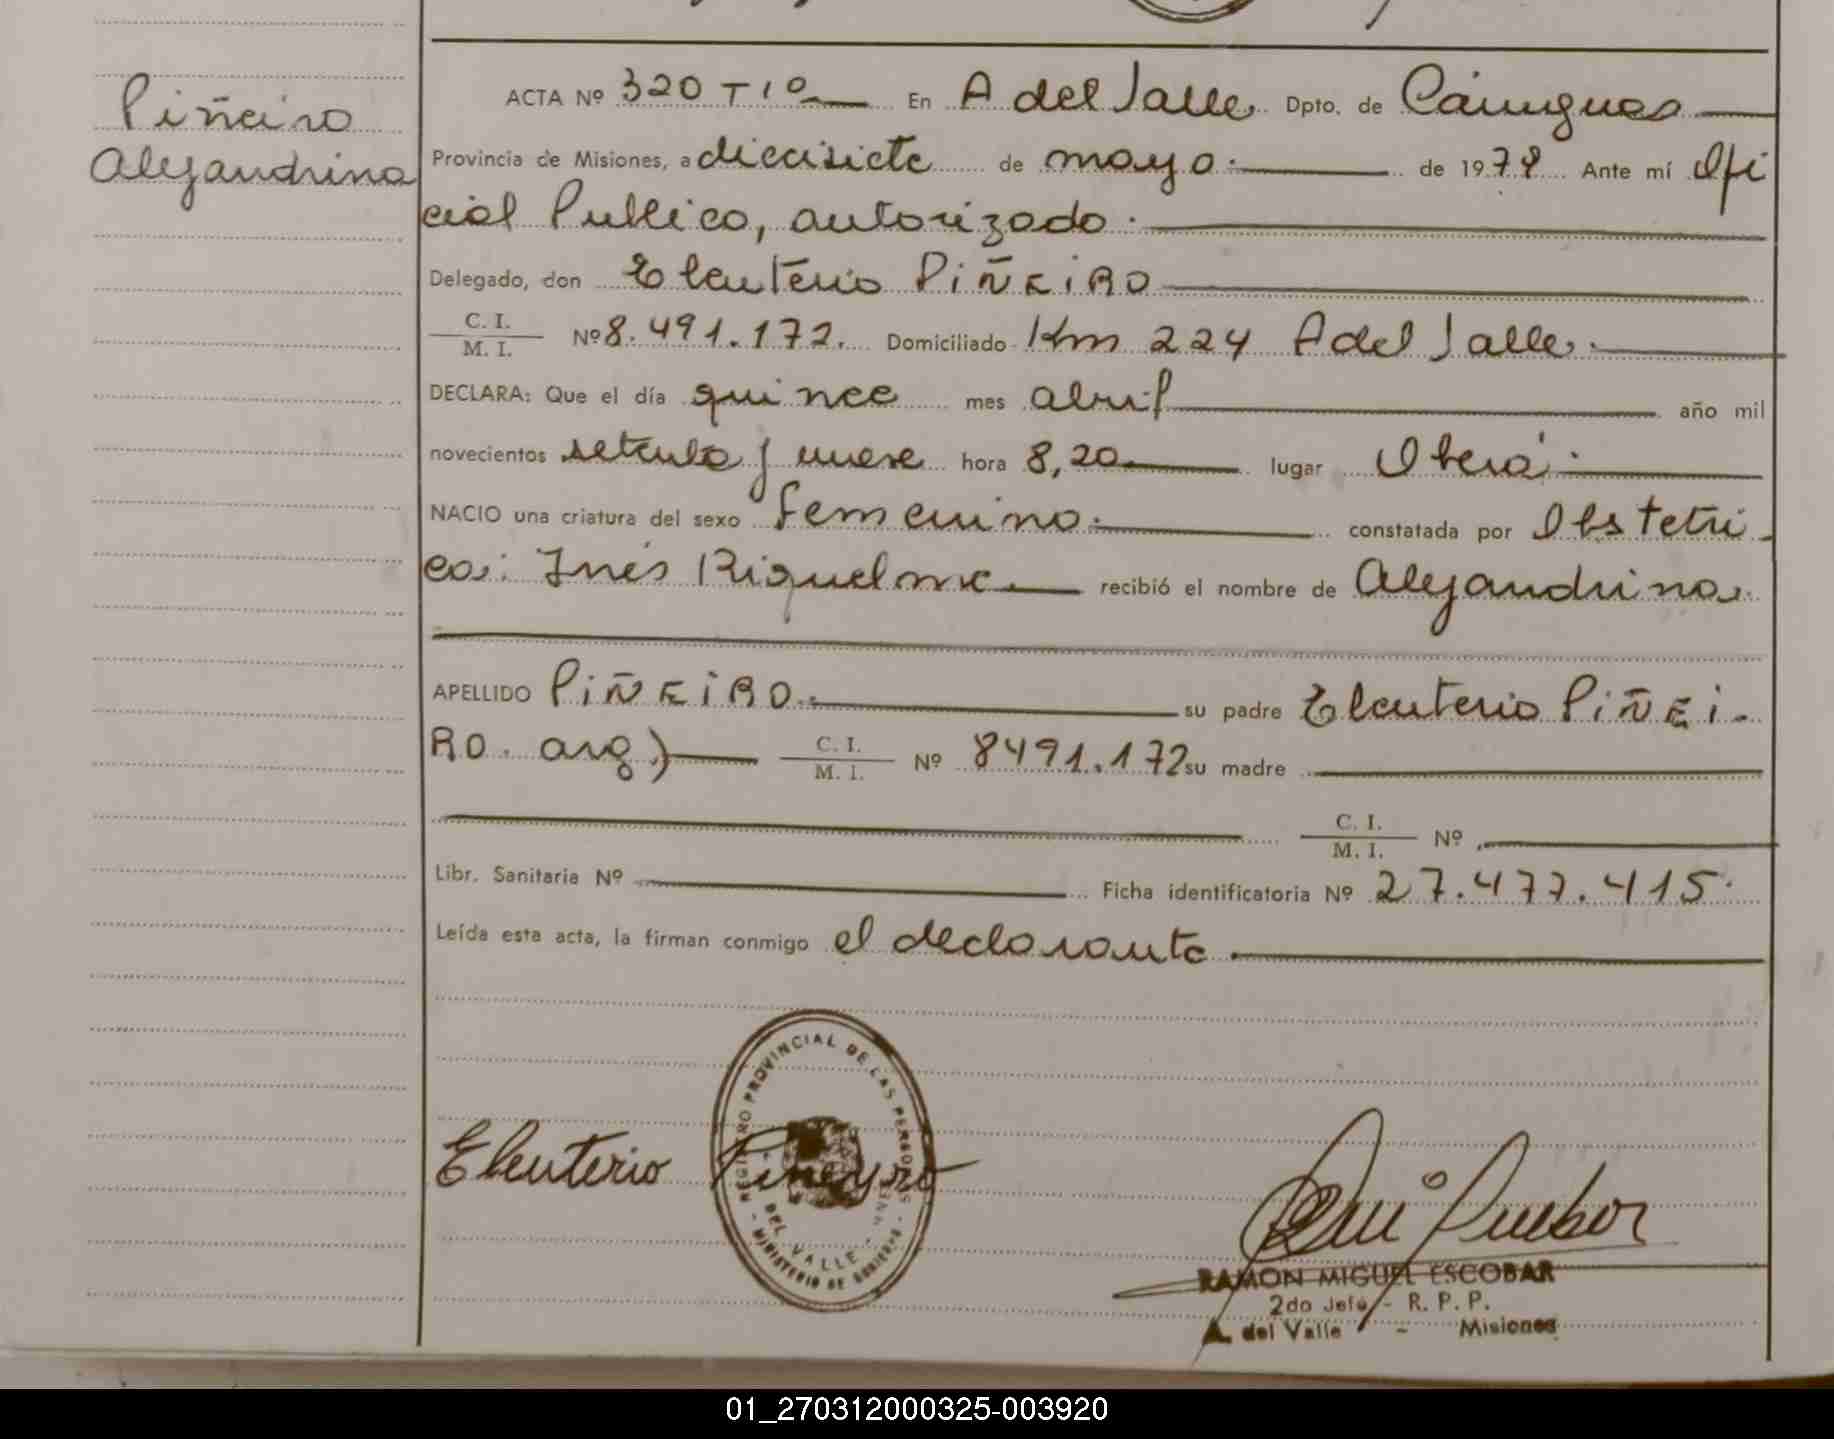 Piñeiro
Alejandrina
ACTA Nº 320 T 1º En A del Valle Dpto. de Cainguas
Provincia de Misiones, a diecisiete de mayo de 1979 Ante mí Ofi
cial Publico, autorizado.
Delegado, don Eleuterio PiÑEiRO
C. I.
M. I. Nº 8.491.172. Domiciliado Km 224 A del Valle.
DECLARA: Que el día quince mes abril año mil
novecientos setenta y nueve hora 8,20 lugar Oberá
NACIO una criatura del sexo femenino. constatada por Obstetri-
ca: Inés Riquelme recibió el nombre de Alejandrina.
APELLIDO PiÑEiRO. su padre Eleuterio PiÑEi-
RO. arg) C. I.
M. I. Nº 8491.172 su madre
C. I.
M. I. Nº
Libr. Sanitaria Nº Ficha identificatoria Nº 27.477.415.
Leída esta acta, la firman conmigo el declarante.
REGISTRO PROVINCIAL DE LAS PERSONAS
DEL VALLE
- MINISTERIO DE GOBIERNO -
Eleuterio Piñeyro
RAMON MIGUEL ESCOBAR
2do Jefe - R. P. P.
A. del Valle - Misiones
01_270312000325-003920